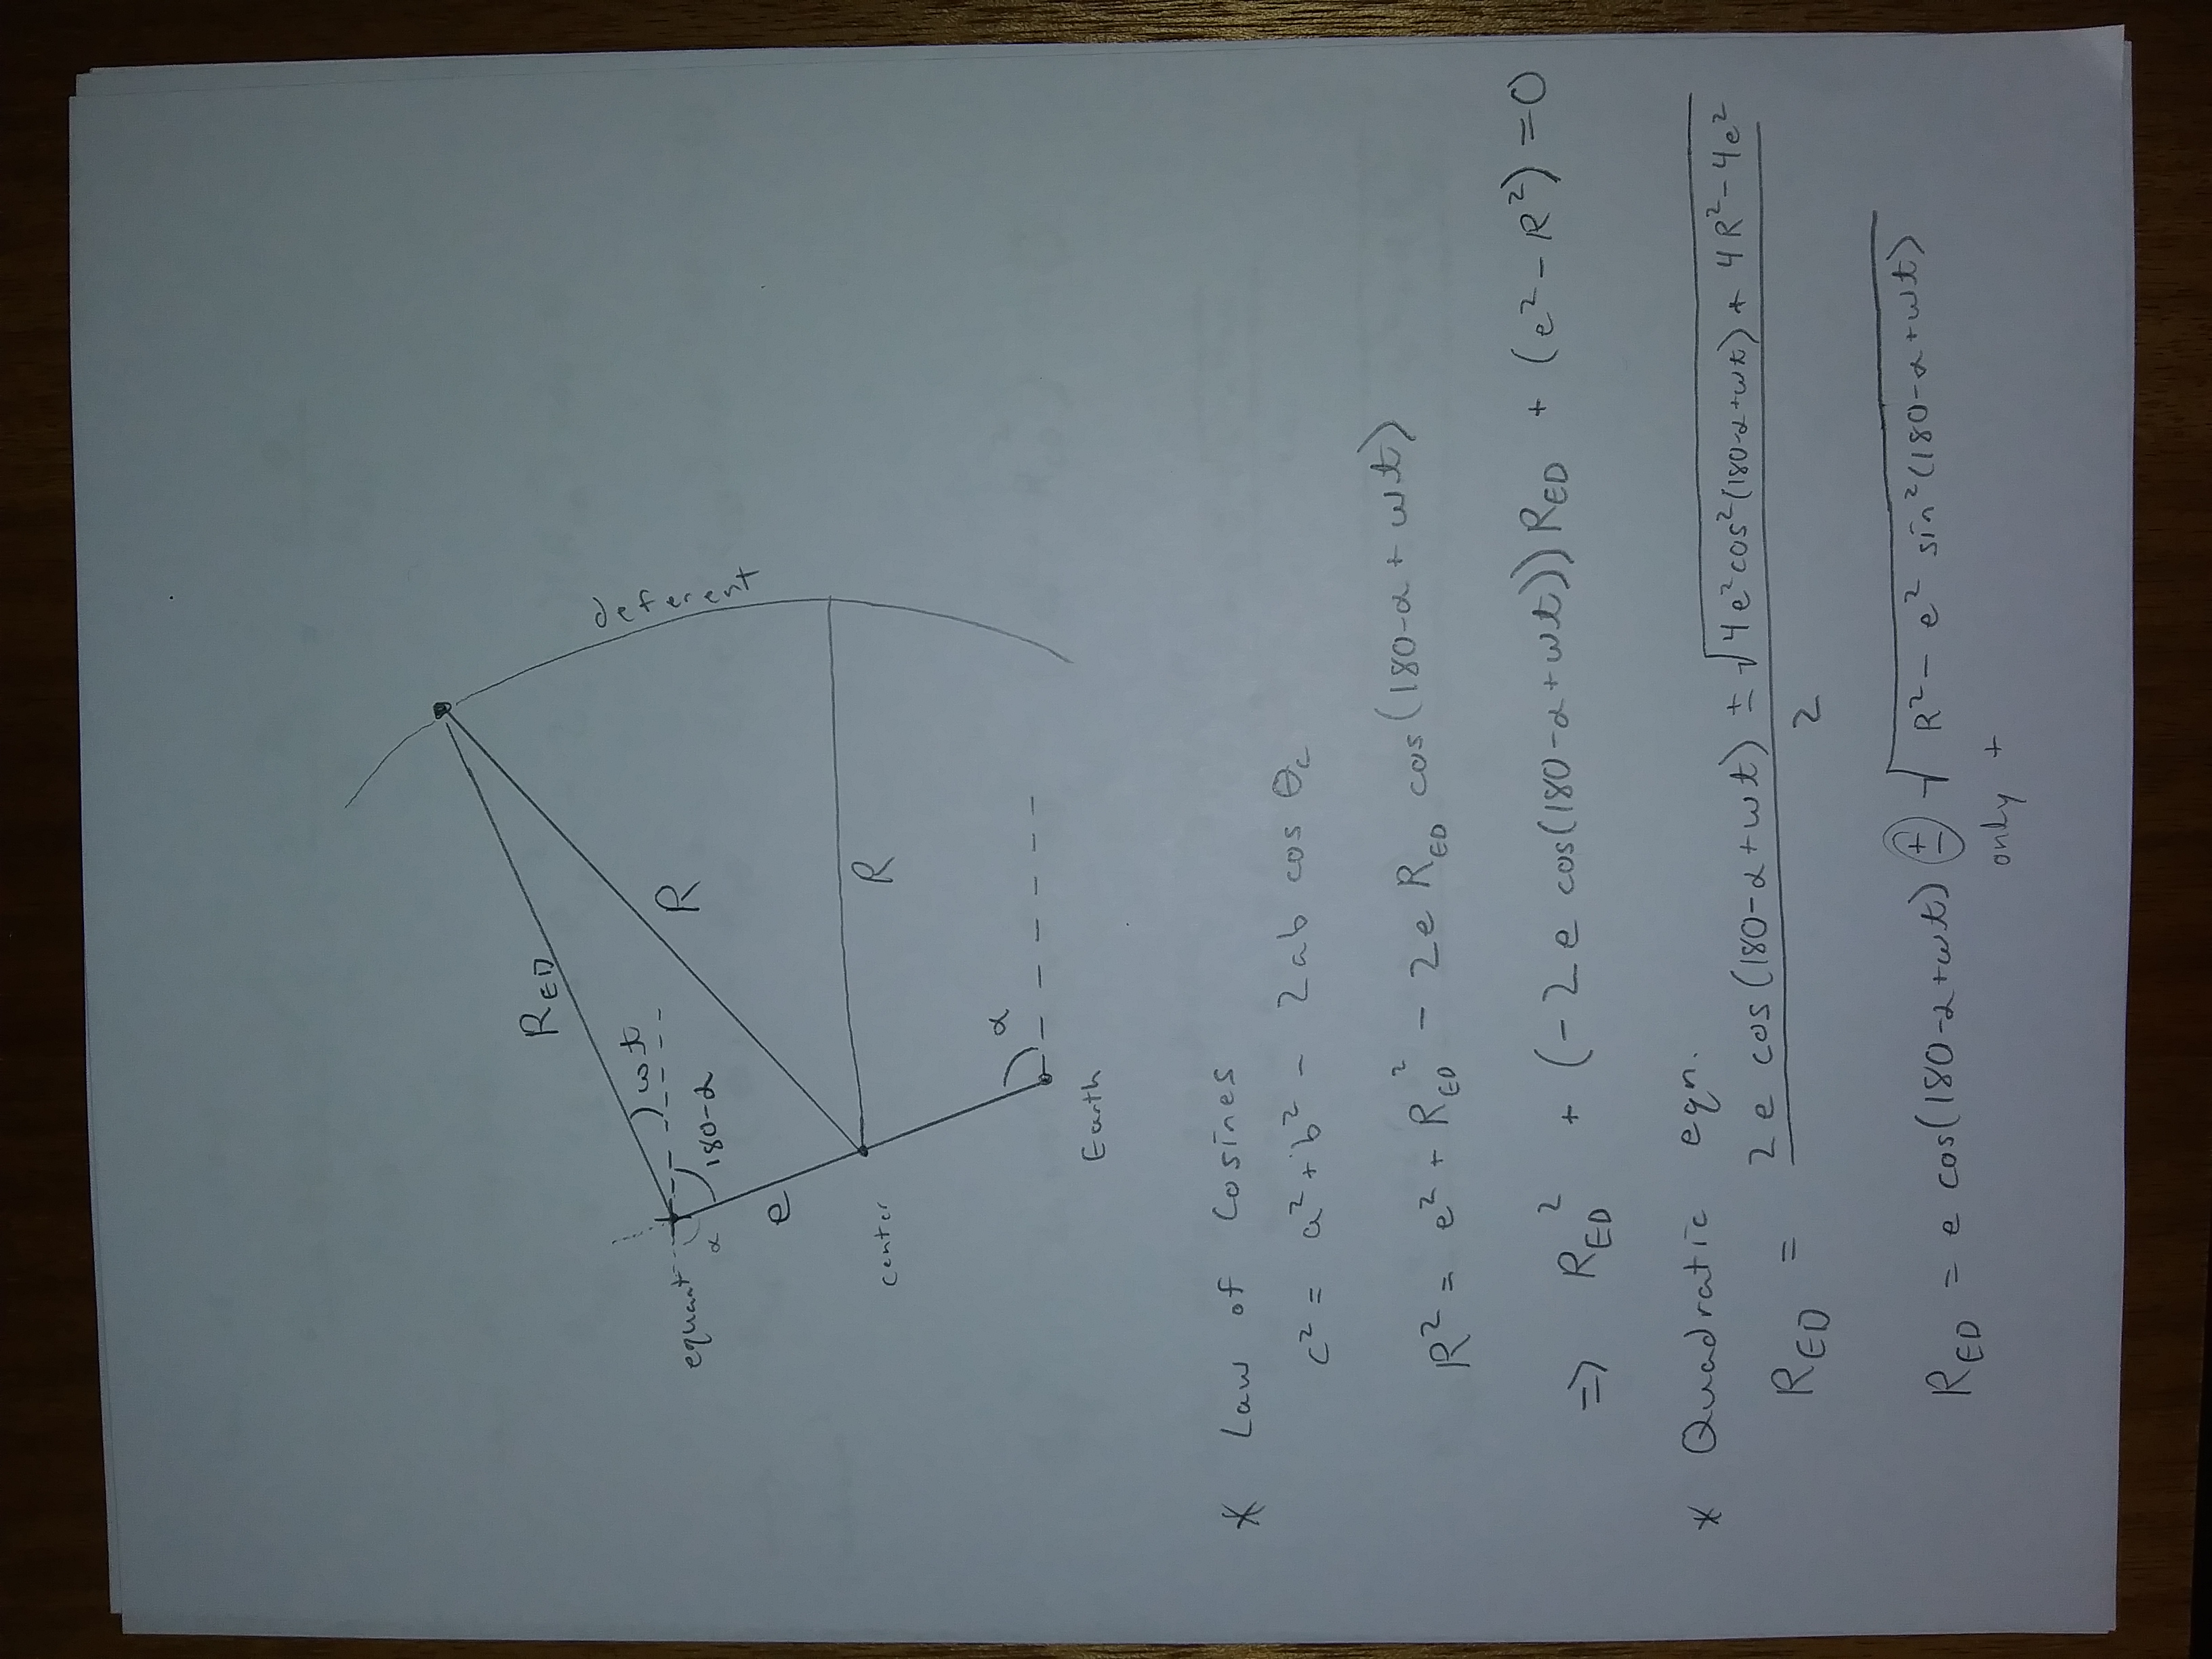 R_ED
ωt
equant
α
180-α
e
R
deferent
center
R
α
Earth
* Law of Cosines
c² = a² + b² - 2ab cos θ_c
R² = e² + R_ED² - 2e R_ED cos(180-α + ωt)
=> R_ED² + (-2e cos(180-α+ωt)) R_ED + (e² - R²) = 0
* Quadratic eqn.
R_ED = (2e cos(180-α+ωt) ± √(4e²cos²(180-α+ωt) + 4R² - 4e²)) / 2
R_ED = e cos(180-α+ωt) ± √(R² - e² sin²(180-α+ωt))
only +